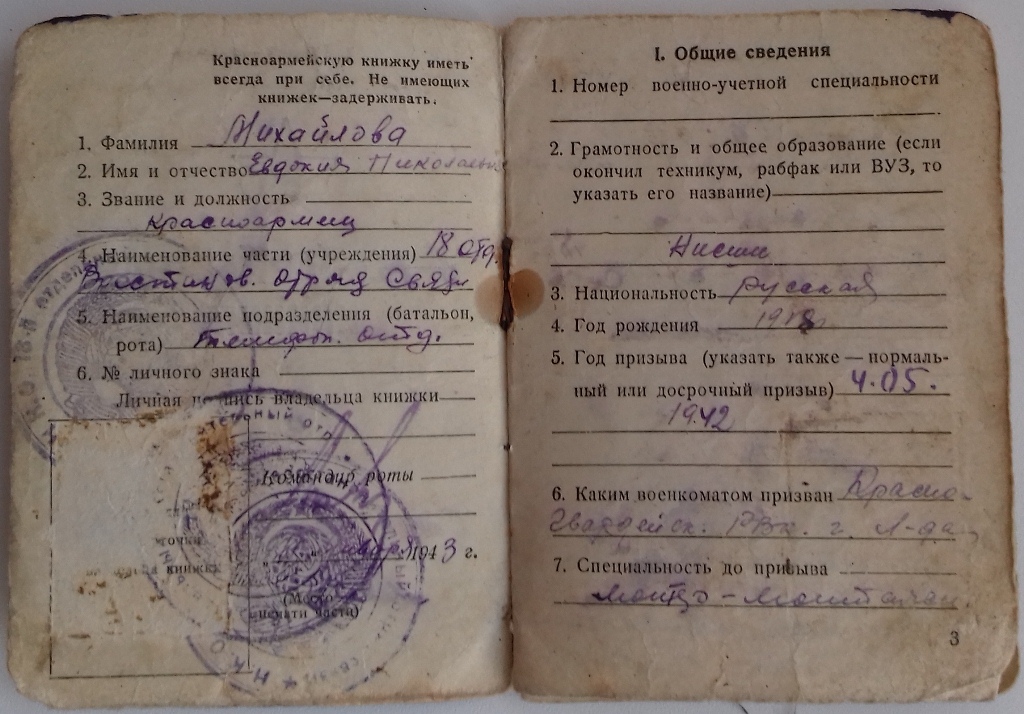 Красноармейскую книжку иметь
всегда при себе. Не имеющих
книжек—задерживать.
1. Фамилия Михайлова
2. Имя и отчество Евдокия
3. Звание и должность
Красноармеец
4. Наименование части (учреждения) 18 отд.
отряд Связи
5. Наименование подразделения (батальон,
рота) отд.
6. № личного знака
Личная подпись владельца книжки
Командир роты
января 1943 г.
(Место
печати части)
I. Общие сведения
1. Номер военно-учетной специальности
2. Грамотность и общее образование (если
окончил техникум, рабфак или ВУЗ, то
указать его название)
Низшее
3. Национальность русская
4. Год рождения
5. Год призыва (указать также — нормаль-
ный или досрочный призыв) 4.05.
1942
6. Каким военкоматом призван Красно-
гвардейск. РВк. г. Л-да
7. Специальность до призыва
3